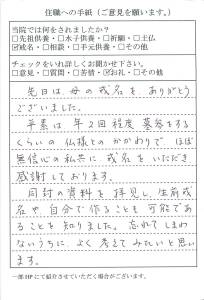 住職への手紙（ご意見を願います。）
当院では何をされましたか？
□先祖供養・□水子供養・□祈願・□土仏
☑戒名・□相談・□手元供養・□その他
チェックをいれ詳しくお聞かせ下さい。
□意見・□質問・□苦情・☑お礼・□その他
先日は母の戒名をありがとう
ございました。
平素は年2回程度墓参をする
くらいの仏様とのかかわりで、ほぼ
無信心の私共に戒名をいただき
感謝しております。
同封の資料を拝見し、生前戒
名や自分で作ることも可能であ
ることを知りました。忘れてしまわ
ないうちに、よく考えてみたいと思い
ます。
一部HPにて紹介させていただく場合がございます。